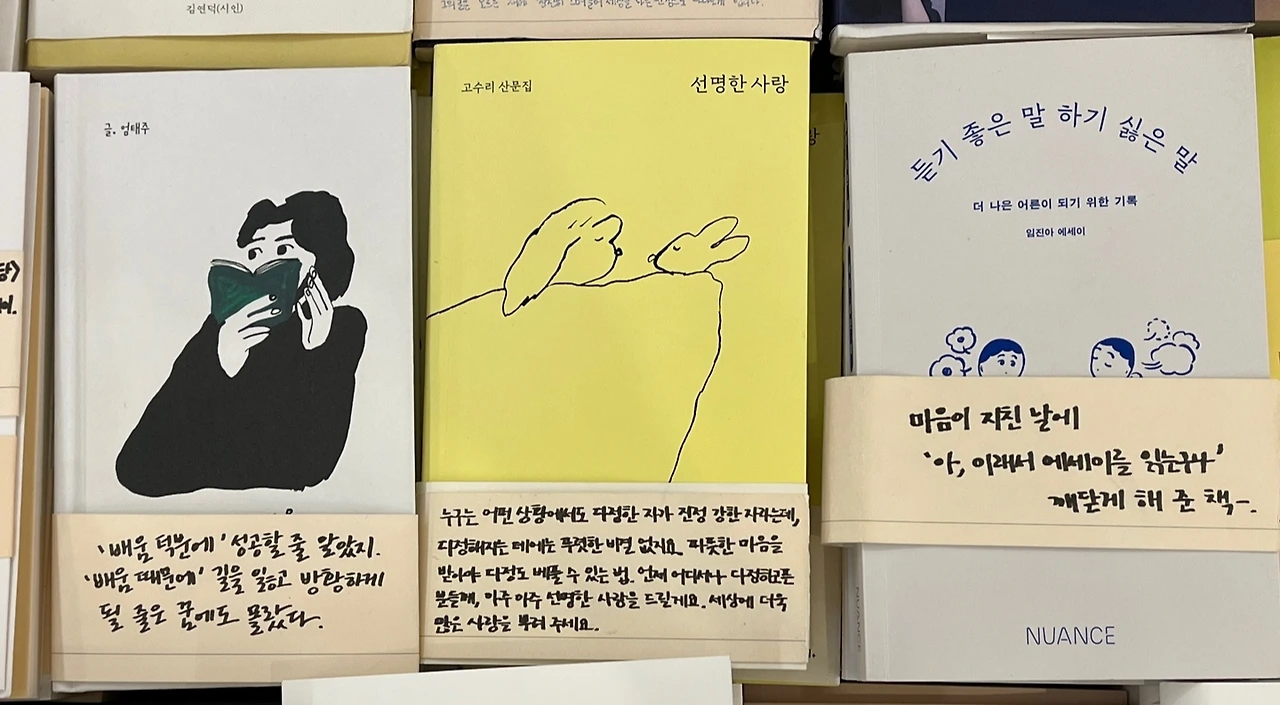 김연덕(시인)
글. 엄태주
'배움 덕분에' 성공할 줄 알았지.
'배움 때문에' 길을 잃고 방황하게
될 줄은 꿈에도 몰랐다.
고수리 산문집
선명한 사랑
누구는 어떤 상황에서도 다정한 자가 진정 강한 자라는데,
다정해지는 데에는 뚜렷한 비결 없지요. 따뜻한 마음을
받아야 다정도 베풀 수 있는 법. 언제 어디서나 다정하고픈
분들께, 아주 아주 선명한 사랑을 드릴게요. 세상에 더욱
많은 사랑을 뿌려 주세요.
듣기 좋은 말 하기 싫은 말
더 나은 어른이 되기 위한 기록
임진아 에세이
마음이 지친 날에
'아, 이래서 에세이를 읽는구나'
깨닫게 해 준 책-.
NUANCE
NUANCE